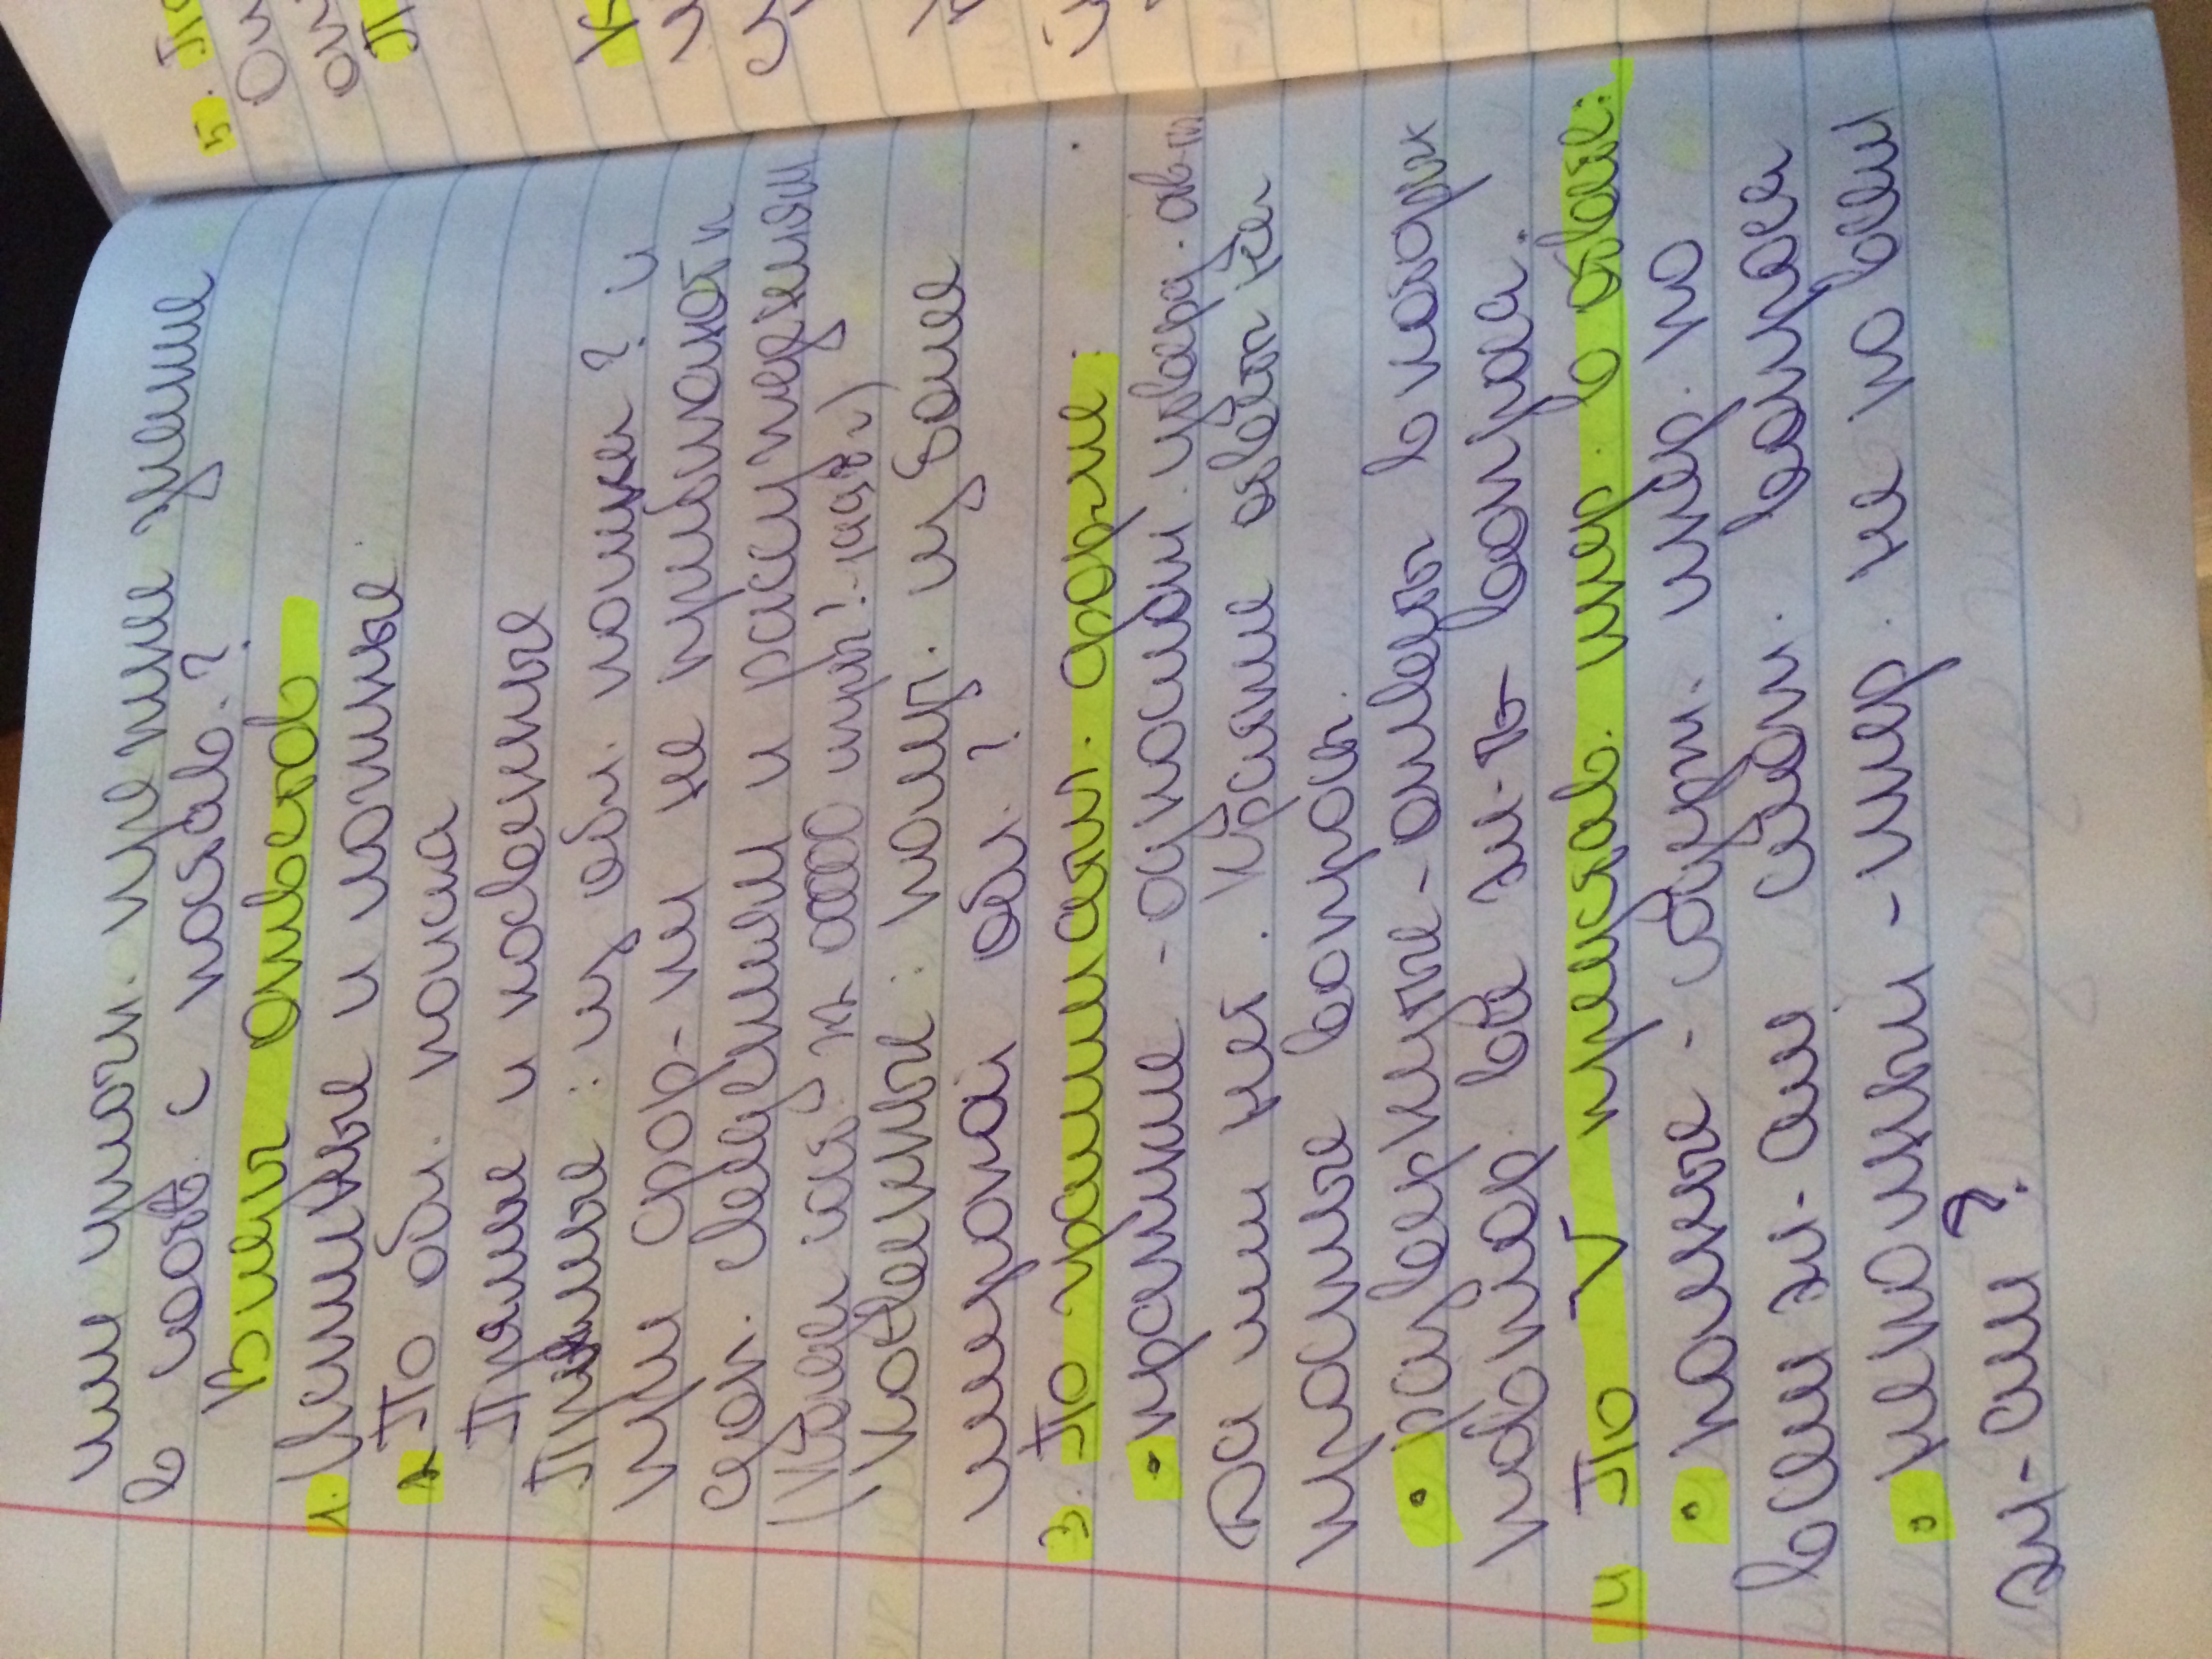 или уточн. прежнее знание
в соотв. с постав. ?
Виды ответов
1. Истинные и ложные
2 По обл. поиска
Прямые и косвенные
Прямые : из обл. поиска ? и
при фор-ки не прибегают к
доп. сведениям и рассуждениям
(Когда сост ХХ игры? - 1998 г)
Косвенные : получ. из более
широкой обл. ?
3. По грамматич. форме:
• краткие - однослож. утверд. отв-ты
Да или нет. Краткие ответы на
простые вопросы.
• развернутые - ответы в которых
повтор. все эл-ты вопроса.
4. По V представ. инф. в ответе:
• полные - содерж. инф. по
всем эл-ам слож. вопроса
• неполный - инф. не по всем
эл-ам ?
5. По